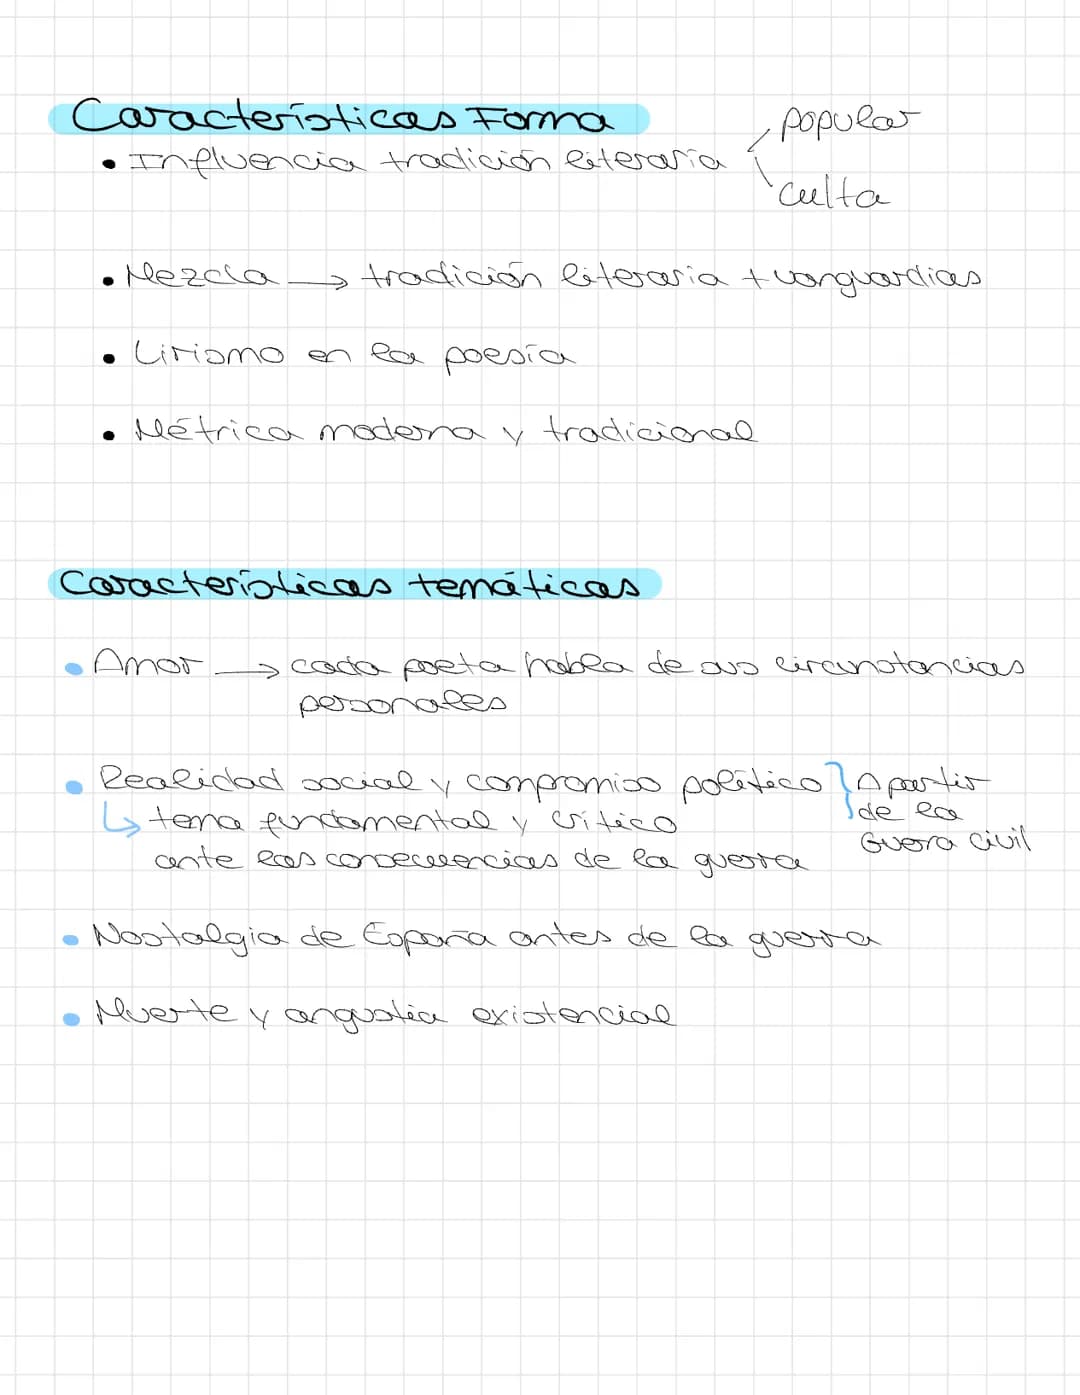 Características Forma
popular
• Influencia tradición literaria
culta
• Mezcla → tradición literaria + vanguardias
• Lirismo en la poesía
• Métrica moderna y tradicional
Características temáticas
• Amor → cada poeta habla de sus circunstancias
personales
• Realidad social y compromiso político } A partir
↳ tema fundamental y crítico
de la
ante las consecuencias de la guerra
Guerra civil
• Nostalgia de España antes de la guerra
• Muerte y angustia existencial